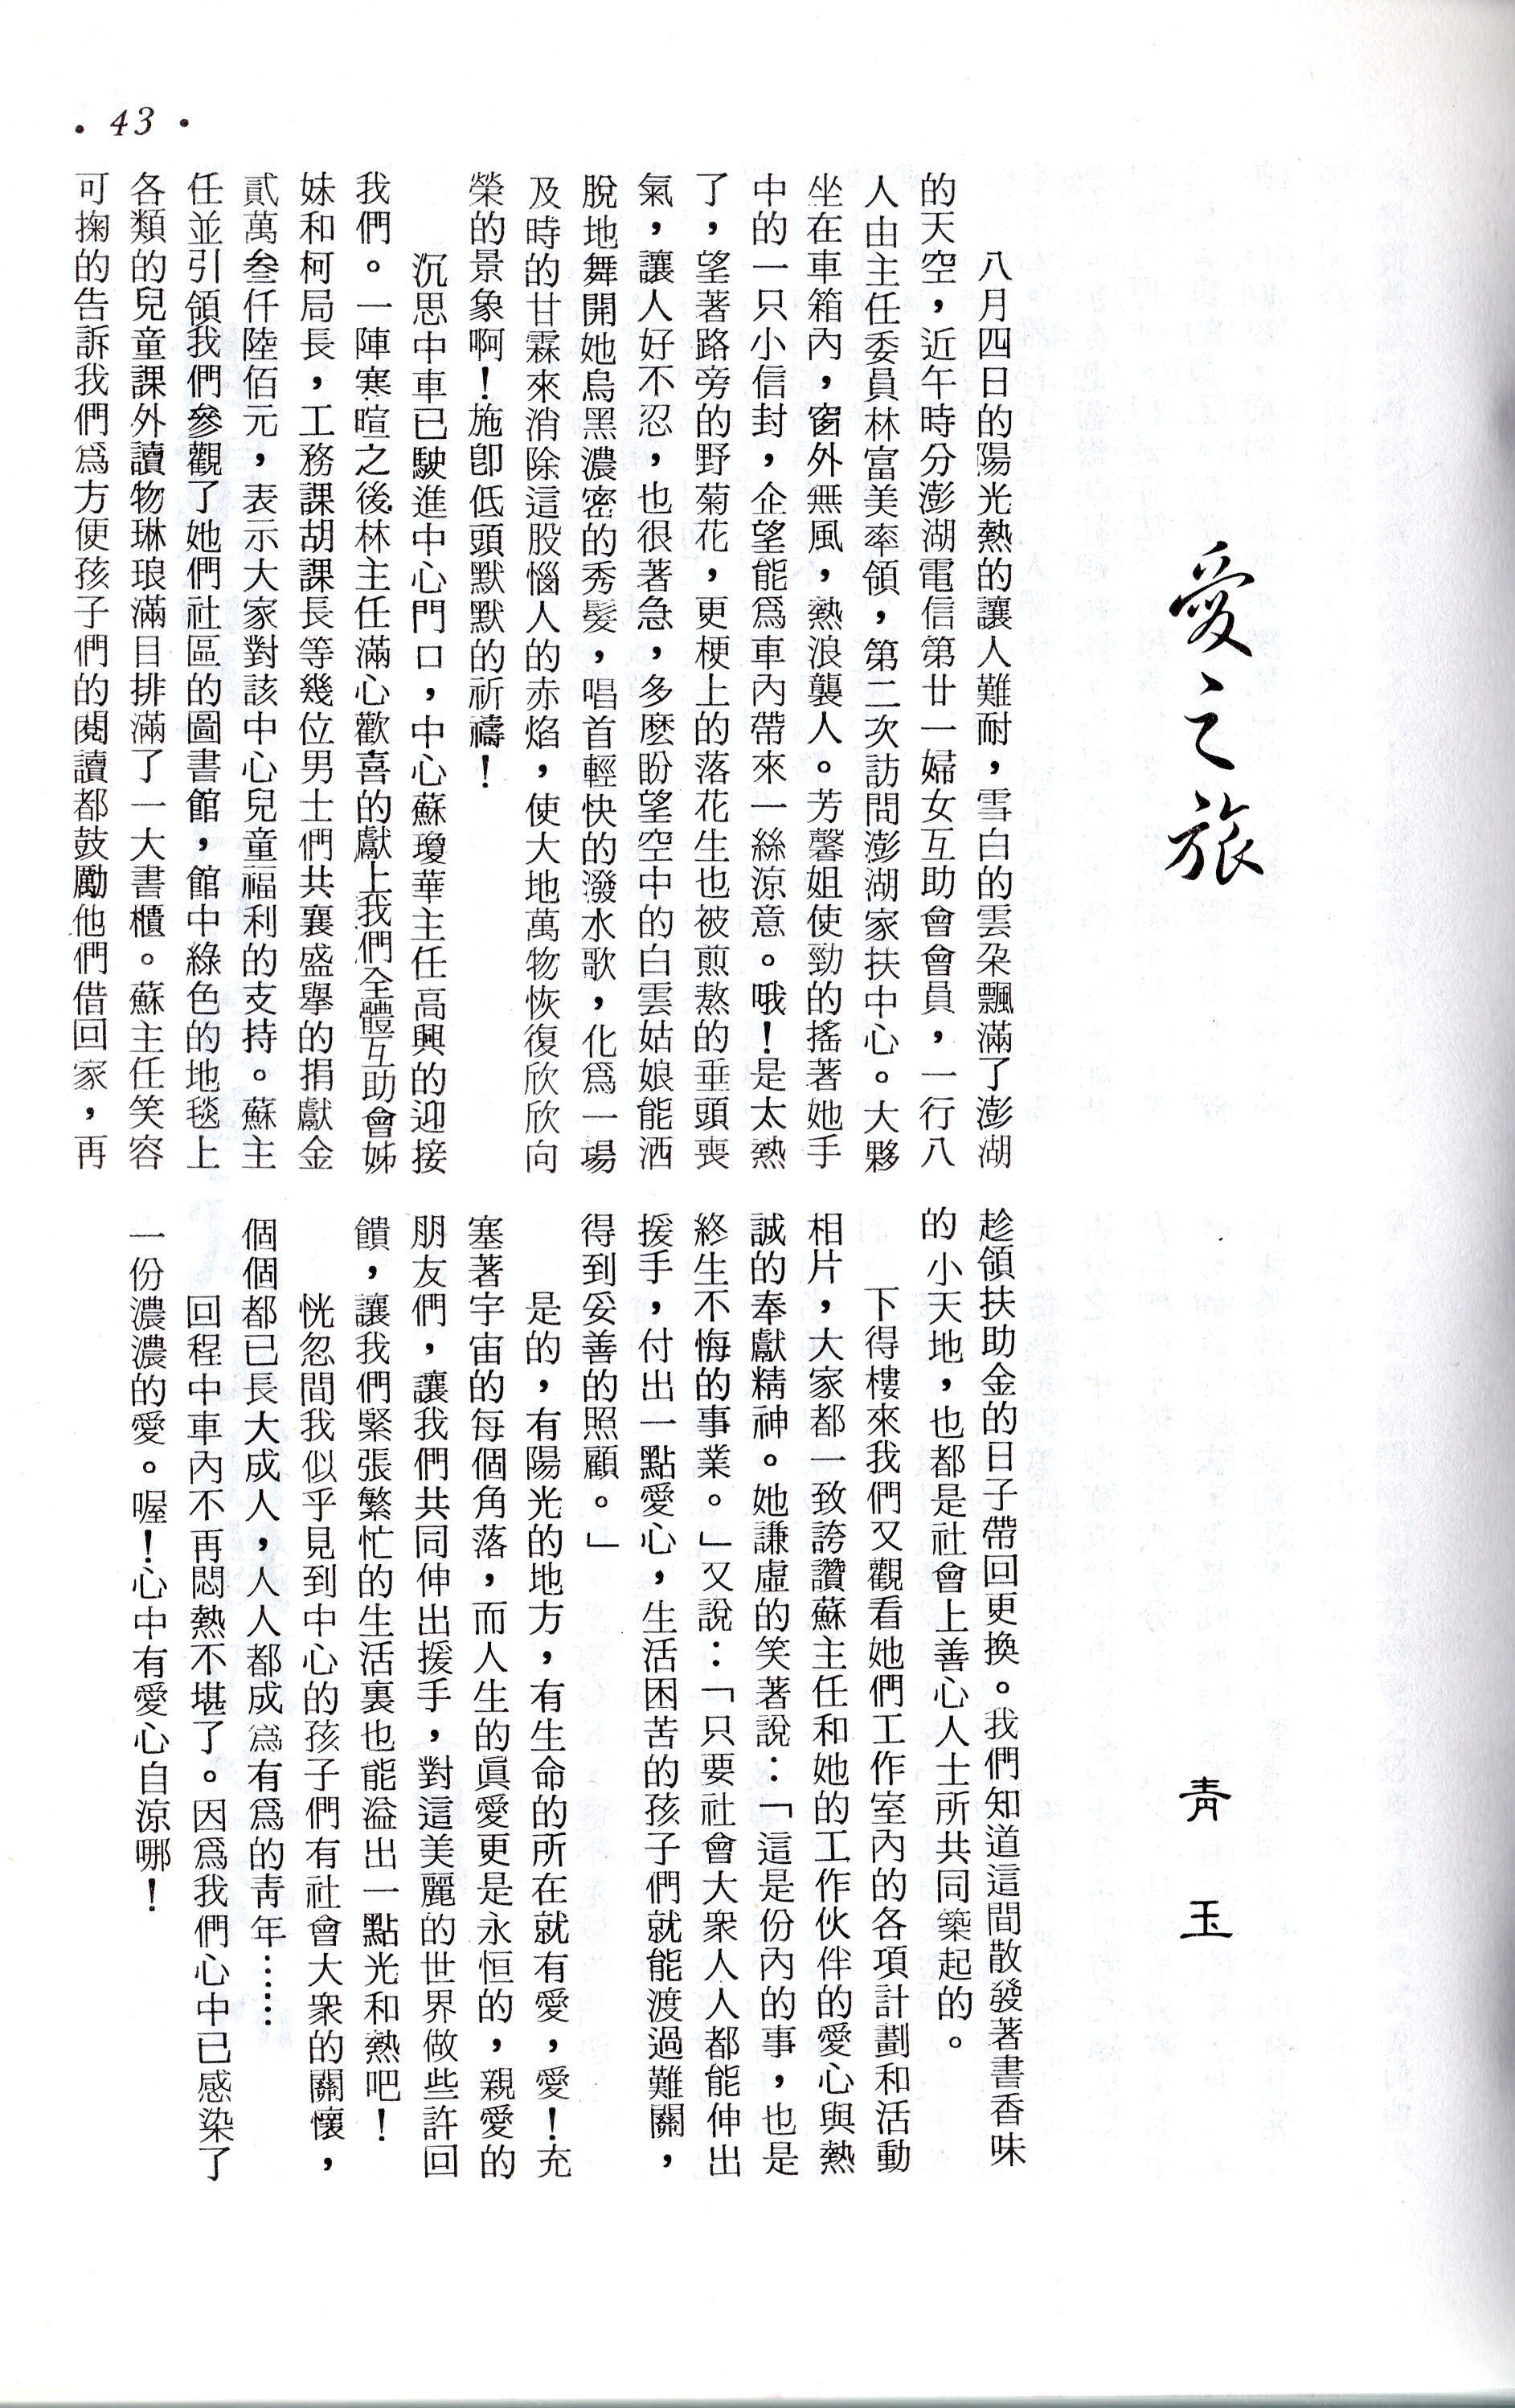 愛之旅
青玉
八月四日的陽光熱的讓人難耐，雪白的雲朶飄滿了澎湖
的天空，近午時分澎湖電信第廿一婦女互助會會員，一行八
人由主任委員林富美率領，第二次訪問澎湖家扶中心。大夥
坐在車箱內，窗外無風，熱浪襲人。芳馨姐使勁的搖著她手
中的一只小信封，企望能爲車內帶來一絲涼意。哦！是太熱
了，望著路旁的野菊花，更梗上的落花生也被煎熬的垂頭喪
氣，讓人好不忍，也很著急，多麽盼望空中的白雲姑娘能洒
脫地舞開她烏黑濃密的秀髮，唱首輕快的潑水歌，化爲一場
及時的甘霖來消除這股惱人的赤焰，使大地萬物恢復欣欣向
榮的景象啊！施卽低頭默默的祈禱！
沉思中車已駛進中心門口，中心蘇瓊華主任高興的迎接
我們。一陣寒暄之後林主任滿心歡喜的獻上我們全體互助會姊
妹和柯局長，工務課胡課長等幾位男士們共襄盛擧的捐獻金
貳萬叄仟陸佰元，表示大家對該中心兒童福利的支持。蘇主
任並引領我們參觀了她們社區的圖書館，館中綠色的地毯上
各類的兒童課外讀物琳琅滿目排滿了一大書櫃。蘇主任笑容
可掬的告訴我們爲方便孩子們的閱讀都鼓勵他們借回家，再
趁領扶助金的日子帶回更換。我們知道這間散發著書香味
的小天地，也都是社會上善心人士所共同築起的。
下得樓來我們又觀看她們工作室內的各項計劃和活動
相片，大家都一致誇讚蘇主任和她的工作伙伴的愛心與熱
誠的奉獻精神。她謙虛的笑著說：「這是份內的事，也是
終生不悔的事業。」又說：「只要社會大衆人人都能伸出
援手，付出一點愛心，生活困苦的孩子們就能渡過難關，
得到妥善的照顧。」
是的，有陽光的地方，有生命的所在就有愛，愛！充
塞著宇宙的每個角落，而人生的眞愛更是永恒的，親愛的
朋友們，讓我們共同伸出援手，對這美麗的世界做些許回
饋，讓我們緊張繁忙的生活裏也能溢出一點光和熱吧！
恍忽間我似乎見到中心的孩子們有社會大衆的關懷，
個個都已長大成人，人人都成爲有爲的靑年……
回程中車內不再悶熱不堪了。因爲我們心中已感染了
一份濃濃的愛。喔！心中有愛心自涼哪！
• 43 •